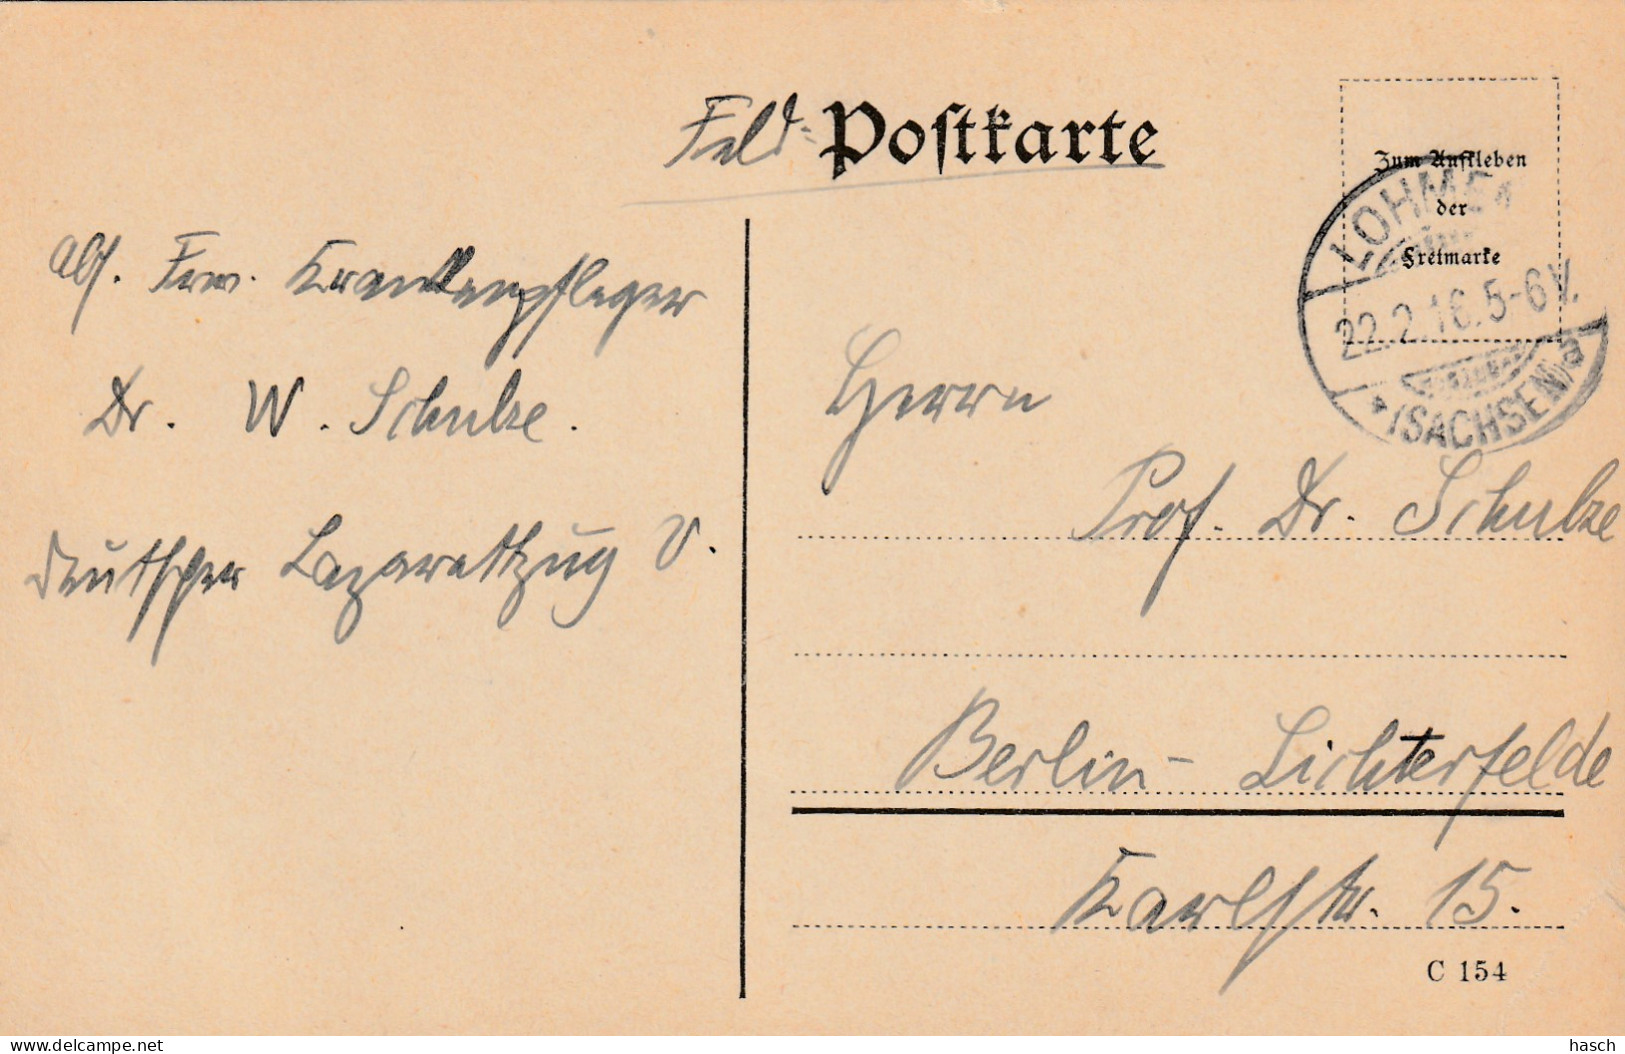 Feld-Postkarte
Zum Aufkleben
der
Freimarke
LOHMEN
22.2.16.5-6V.
*(SACHSEN)a
Abs. Frw. Krankenpfleger
Dr. W. Schulze.
Deutscher Lazarettzug V.
Herrn
Prof. Dr. Schulze
Berlin-Lichterfelde
Karlstr. 15.
C 154
delcampe.net
hasch